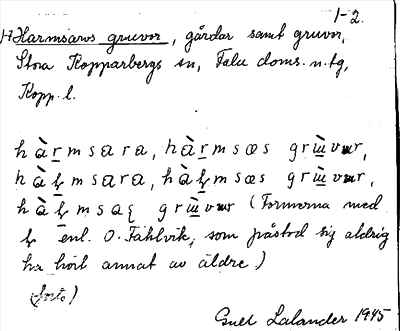 1-2.
Harmsaros gruvor, gårdar samt gruvor,
Stora Kopparbergs sn, Falu doms. n. tg,
Kopp. l.
hàrmsara, hàrmsœs grùvɯr,
hàꞎmsara, hàꞎmsœs grùvɯr,
hàꞎmsaꞎ grùvɯr (Formerna med
ꞎ enl. O. Fählvik, som påstod sig aldrig
ha hört annat av äldre.)
(forts)
Gull Lalander 1945